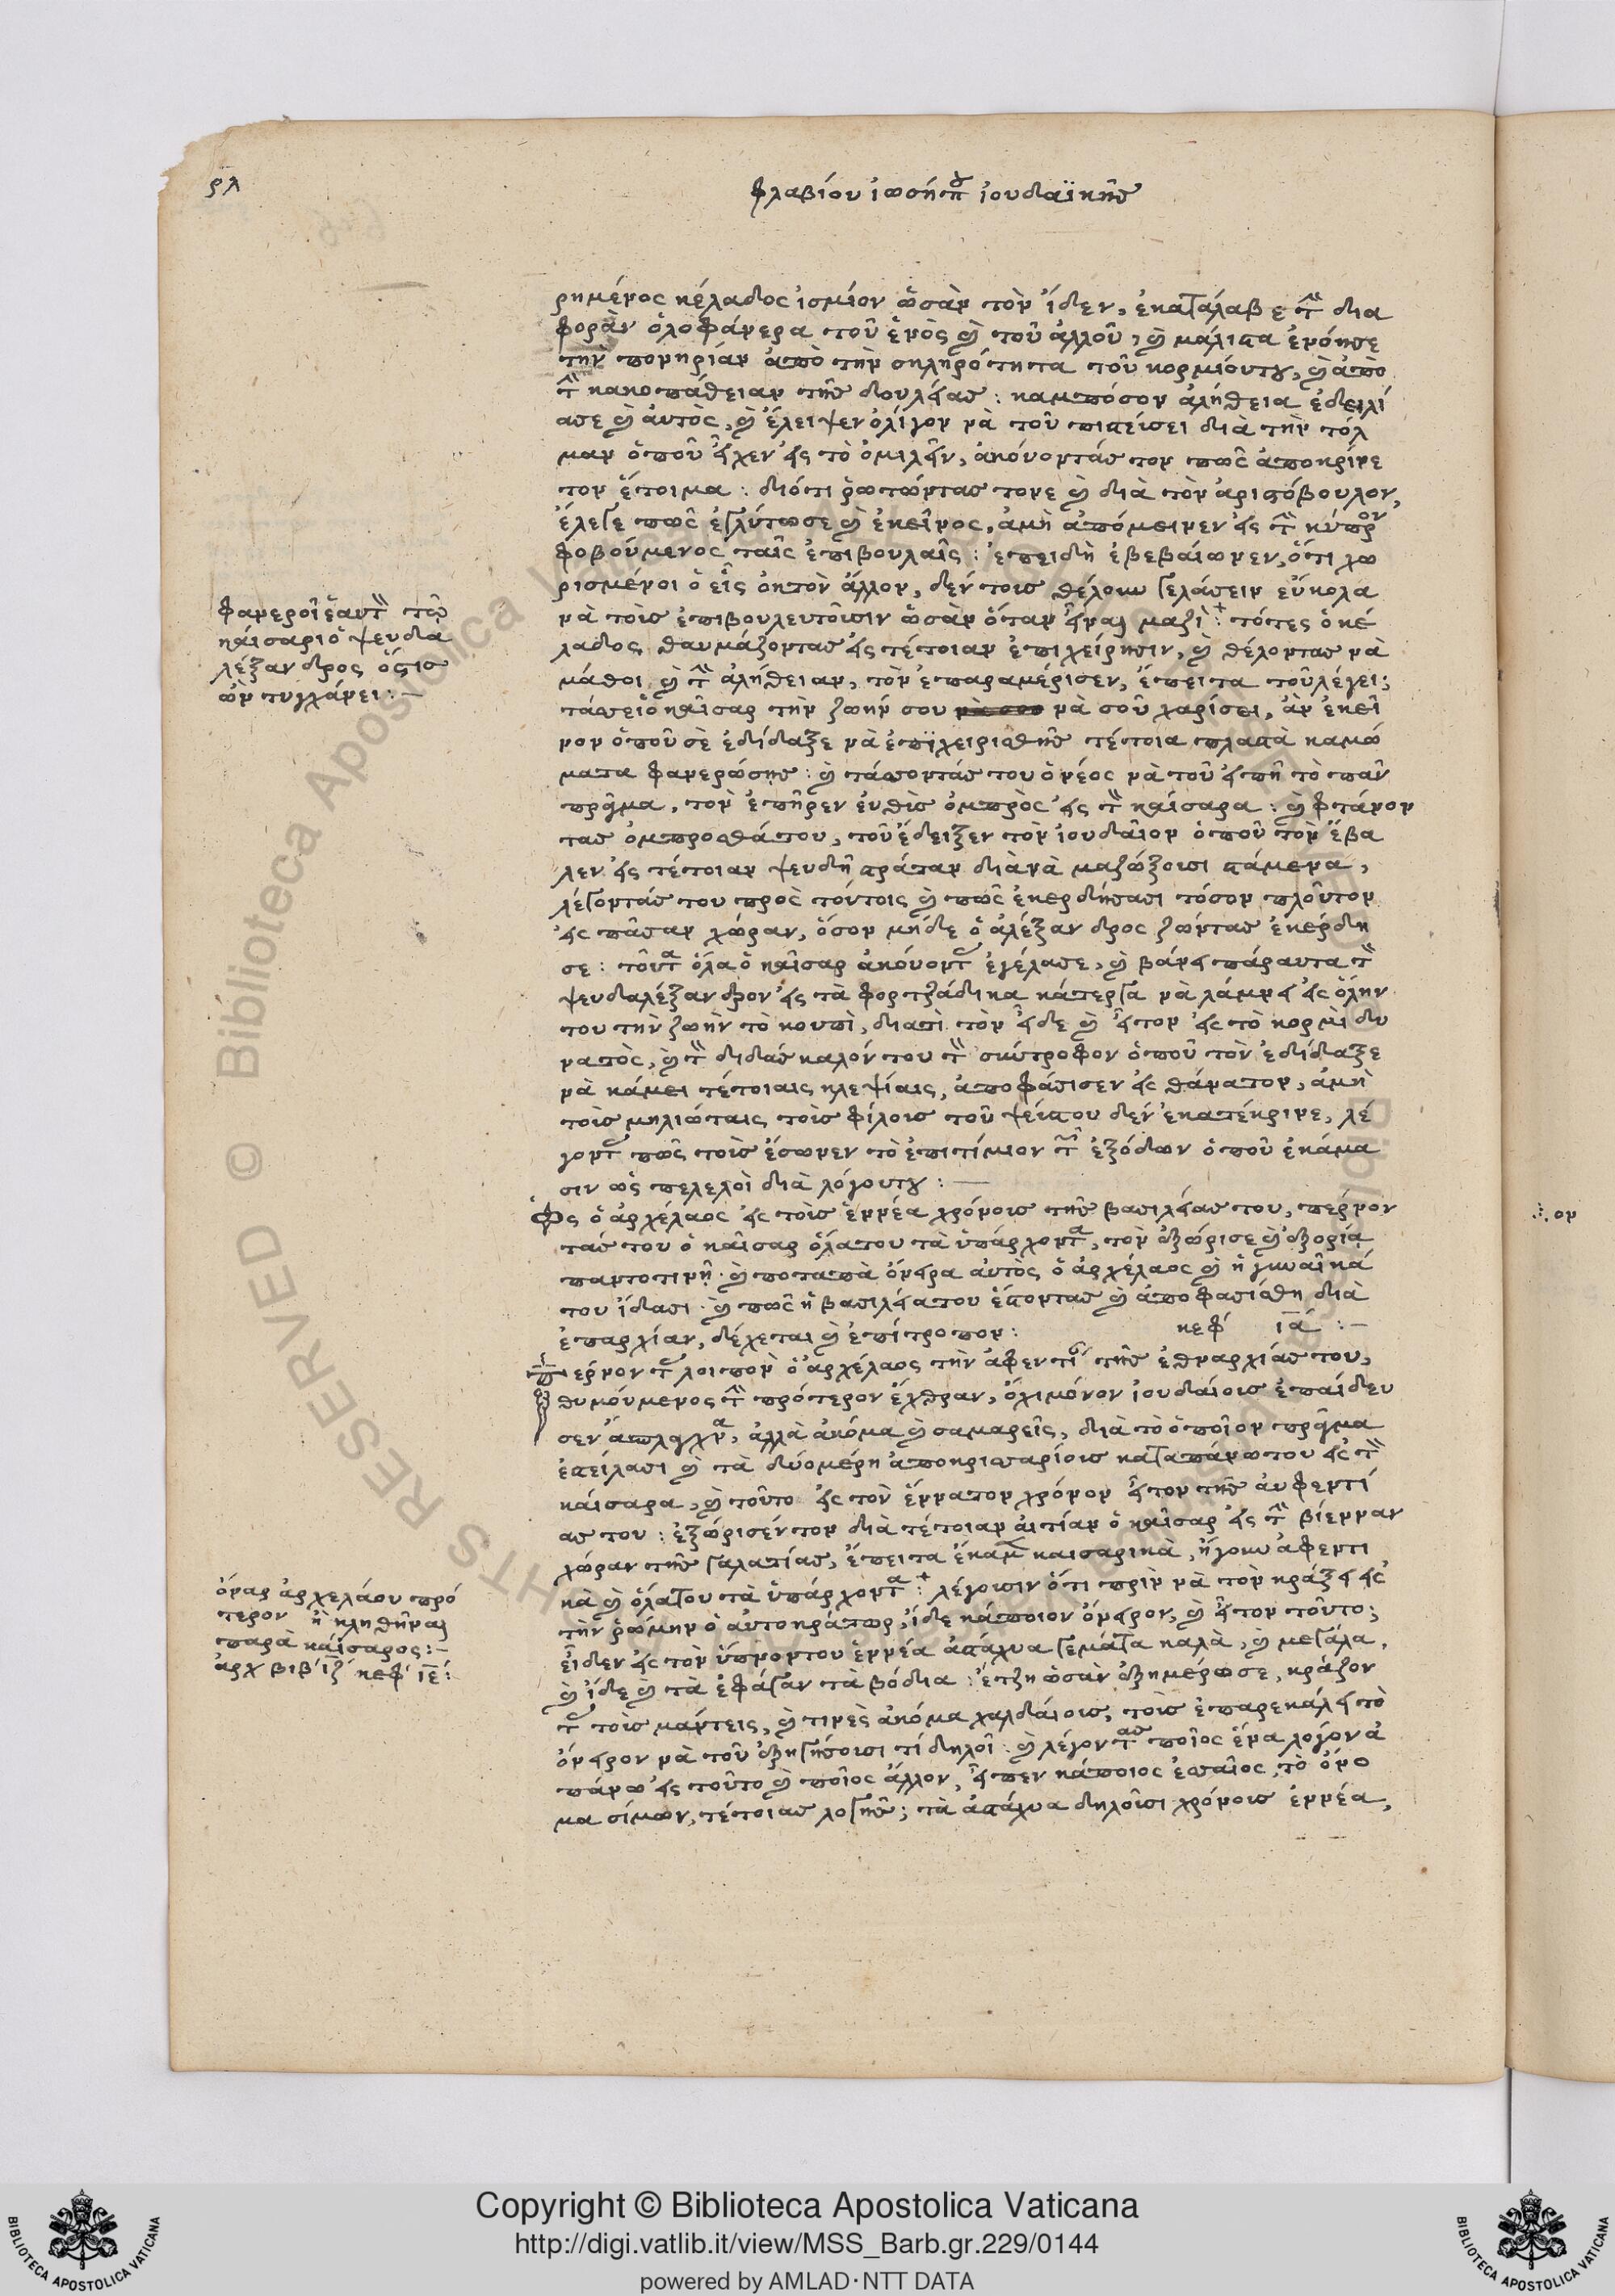 ϙλ
φλαβίου ἰωσήπου ἰουδαϊκῆς
ρημένος κέλαδος ἰσμίον ὡσὰν τὸν ἴδεν, ἐκατάλαβε τὴν δια
φορὰν ὁλοφάνερα τοῦ ἑνὸς καὶ τοῦ ἀλλοῦ, καὶ μάλιστα ἐνόησε
τὴν πονηρίαν ἀπὸ τὴν σκληρότητα τοῦ κορμιόυτου, καὶ ἀπὸ
τὴν κακοπάθειαν τῆς δουλείας: καμπόσον ἀλήθεια ἐδειλί
ασε καὶ ἀυτὸς, καὶ ἔλειψεν ὀλίγον νὰ τοῦ πιστεύσει διὰ τὴν τόλ
μαν ὁποῦ εἶχεν εἰς τὸ ὁμιλεῖν, ἀκούοντάς τον πῶς ἀποκρίνε
τον ἕτοιμα: διότι ῥωτώντας τονε καὶ διὰ τὸν ἀριστόβουλον,
ἔλεγε πῶς ἐγλύτωσε καὶ ἐκεῖνος, ἀμὴ ἀπόμεινεν εἰς τὴν κύπρον
φοβούμενος ταῖς ἐπιβουλαῖς: ἐπειδὴ ἐβεβαίωνεν, ὅτι χω
ρισμένοι ὁ εἷς ἐκ τὸν ἄλλον, δέν τοις θέλουν γελάσειν εὔκολα
νὰ τοὶς ἐπιβουλευτοῦσιν ὡσὰν ὅταν εἶναι μαζί: τότες ὁ κέ
λαδος, θαυμάζοντας εἰς τέτοιαν ἐπιχείρησιν, καὶ θέλοντας νὰ
μάθοι καὶ τὴν ἀλήθειαν, τὸν ἐπαραμέρισεν, ἔπειτα τοῦ λέγει;
τάσσει ὁ καῖσαρ τὴν ζωήν σου νὰ σοῦ χαρίσει, ἂν ἐκεῖ
νον ὁποῦ σὲ ἐδίδαξε νὰ ἐπϊχειρισθῇς τέτοια πλαστὰ καμώ
ματα φανερώσῃς: καὶ τάσσοντάς του ὁ νέος νὰ τοῦ εἰπῆ τὸ πᾶν
πρᾶγμα, τὸν ἐπῆρεν ἐυθὶς ὀμπρὸς εἰς τὸν καίσαρα: καὶ φτάνον
τας ὀμπροσθάτου, τοῦ ἔδειξεν τὸν ἰουδαῖον ὁποῦ τὸν ἔβα
λεν εἰς τέτοιαν ψευδῆ στράταν διὰ νὰ μαζώξουσι στάμενα,
λέγοντάς του πρὸς τούτοις καὶ πῶς ἐκερδήσασι τόσον πλοῦτον
εἰς πᾶσαν χώραν, ὅσον μήδε ὁ ἀλέξανδρος ζώντας ἐκέρδη
σε: τοῦτα ὅλα ὁ καῖσαρ ἀκούοντας ἐγέλασε, καὶ βάνει πάραυτα τὸν
ψευδαλέξανδρον εἰς τὰ φορτζάδικα κάτεργα νὰ λάμνει εἰς ὅλην
του τὴν ζωὴν τὸ κουπὶ, διατὶ τὸν εἶδε καὶ εἶτον εἰς τὸ κορμὶ δυ
νατὸς, καὶ τὸν διδάσκαλόν του τὸν σκύτροφον ὁποῦ τὸν ἐδίδαξε
νὰ κάμει τέτοιαις κλεψίαις, ἀποφάσισεν εἰς θάνατον, ἀμὴ
τοὶς μηλιώταις τοὶς φίλοις τοῦ ψεύστου δέν ἐκατέκρινε, λέ
γοντας πῶς τοὶς ἔσωνεν τὸ ἐπιτίμιον τῶν ἐξόδων ὁποῦ ἐκάμα
σιν ὡς πελελοὶ διὰ λόγουτου:
Πῶς ὁ ἀρχέλαος εἰς τοὶς ἐννέα χρόνοις τῆς βασιλείας του, πέρνον
τάς του ὁ καῖσαρ ὅλα του τὰ ὑπάρχοντα, τὸν ἐξώρισε καὶ ἐξορία
παντοτινῆ. καὶ ποταπὰ ὄνειρα ἀυτὸς ὁ ἀρχέλαος καὶ ἡ γυναῖκά
του ἴδασι. καὶ πῶς ἡ βασιλεία του ἔστοντας καὶ ἀποφασίσθη διὰ
ἐπαρχίαν, δέχεται καὶ ἐπίτροπον: κεφ ιά:
Πέρνοντας λοιπὸν ὁ ἀρχέλαος τὴν ἀφεντίαν τῆς ἐθναρχίας του,
θυμούμενος τὴν πρότερον ἔχθραν, ὄχι μόνον ἰουδαίοις ἐπαίδευ
σεν ἄσπλαγχνα, ἀλλὰ ἀκόμα καὶ σαμαρεῖς, διὰ τὸ ὁποῖον πρᾶγμα
ἐστείλασι καὶ τὰ δύο μέρη ἀποκρισαρίοις κατὰ πάνω του εἰς τὸν
καίσαρα, καὶ τοῦτο εἰς τὸν ἔννατον χρόνον εἶτον τῆς ἀυφεντί
ας του: ἐξώρισέν τον διὰ τέτοιαν ἀιτίαν ὁ καῖσαρ εἰς τὴν βίενναν
χώραν τῆς γαλατίας, ἔπειτα ἔκαμεν καισαρικὰ, ἤγουν ἀφεντι
κὰ καὶ ὅλα του τὰ ὑπάρχοντα: λέγουσιν ὅτι πρὶν νὰ τὸν κράξει εἰς
τὴν ῥώμην ὁ ἀυτοκράτωρ, ἴδε κάποιον ὄνειρον, καὶ εἶτον τοῦτο;
εἶδεν εἰς τὸν ὕπνον του ἐννέα ἀστάχυα γεμάτα καλὰ, καὶ μεγάλα,
καὶ ἴδε καὶ τὰ ἐφάγαν τὰ βόδια: ἔτζη ὡσὰν ἐξημέρωσε, κράζον
τας τοὶς μάντεις, καὶ τινὲς ἀκόμα χαλδαίοις, τοὶς ἐπαρεκάλει τὸ
ὄνειρον νὰ τοῦ ἐξηγήσουσι τί δηλοῖ: καὶ λέγοντας ποῖος ἕνα λόγον ἀ
πάνω εἰς τοῦτο καὶ ποῖος ἄλλον, εἶπεν κάποιος ἐσσαῖος, τὸ ὄνο
μα σίμων, τέτοιας λογῆς; τὰ ἀστάχυα δηλοῦσι χρόνοις ἐννέα,
φανεροῖ ἑαυτὸν τῷ
καίσαρι ὁ ψευδα
λέξανδρος ὅστις
ὢν τυγχάνει:
ὄναρ ἀρχελάου πρό
τερον ἢ κληθῆναι
παρὰ καίσαρος:
ἀρχ βιβ ιζ κεφ ιε:
ον
Copyright © Biblioteca Apostolica Vaticana
http://digi.vatlib.it/view/MSS_Barb.gr.229/0144
powered by AMLAD·NTT DATA
BIBLIOTECA APOSTOLICA VATICANA
BIBLIOTECA APOSTOLICA VATICANA